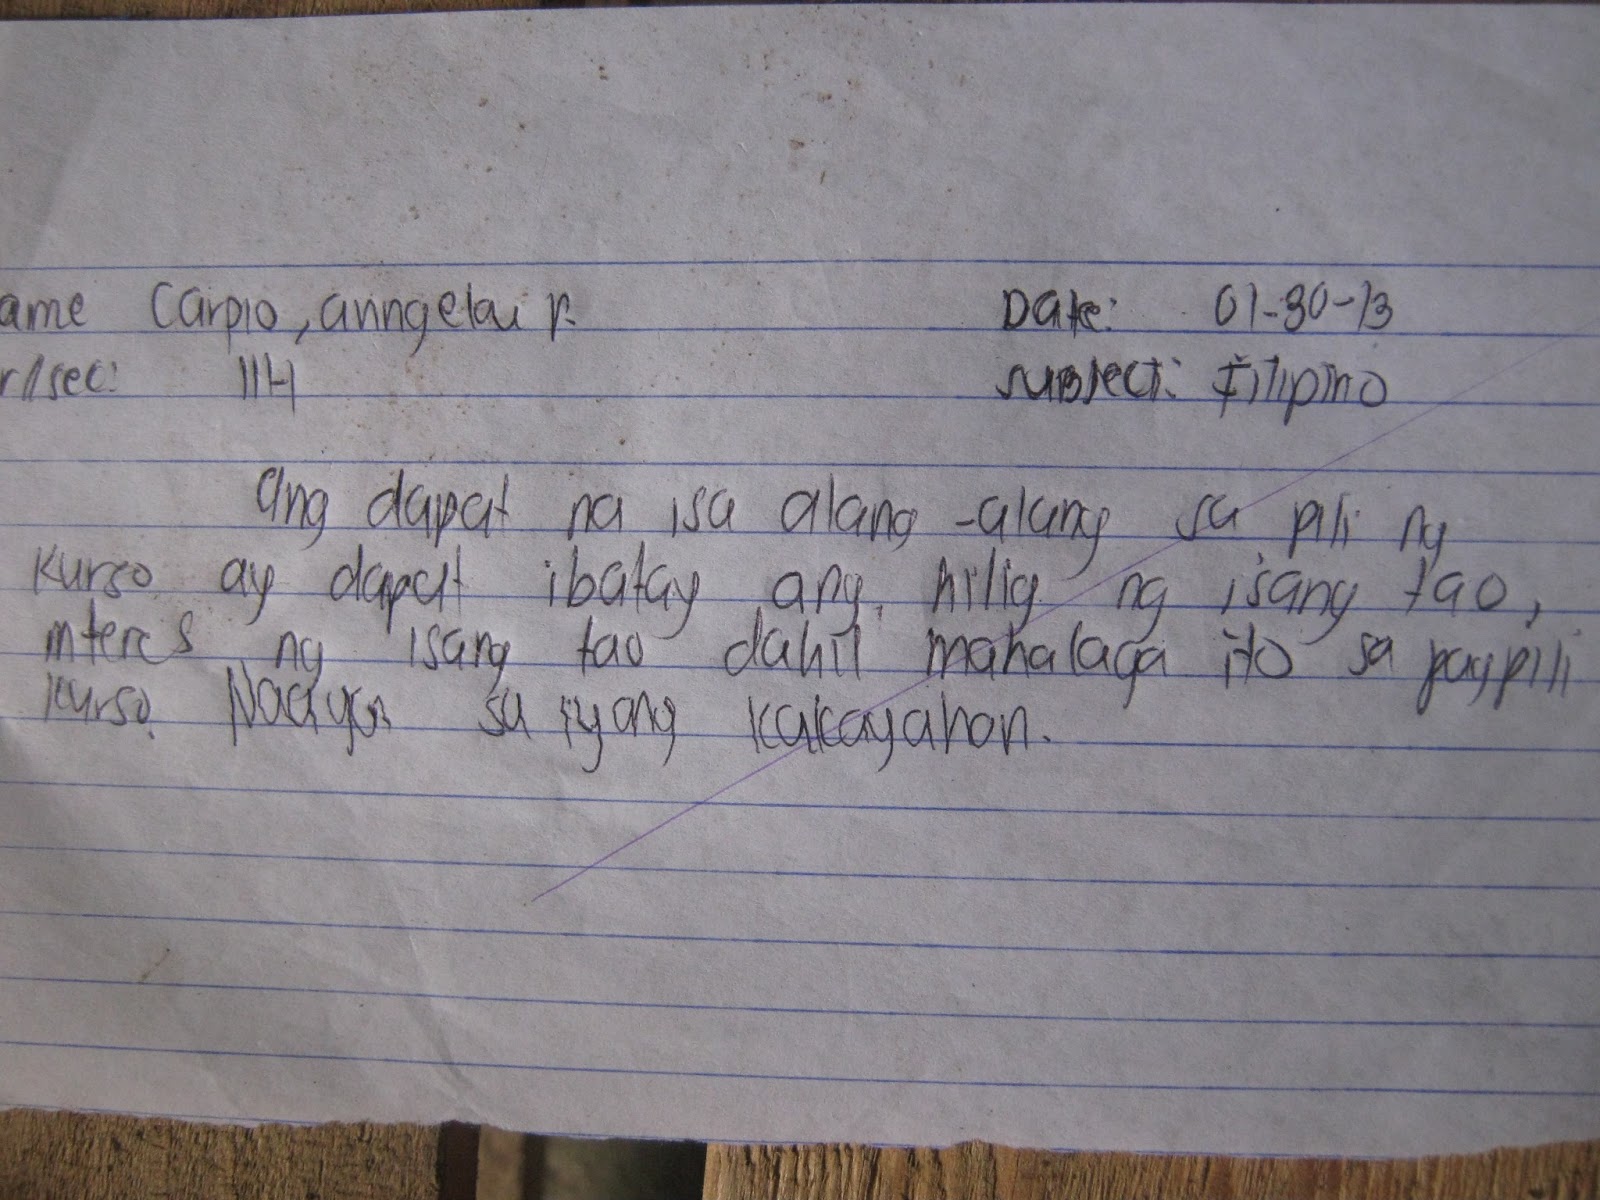 ame Carpio, anngelai r.
Date: 01-30-13
r/sec: III-I
Subject: Filipino
Ang dapat na isa alang-alang sa pili ng
kurso ay dapat ibatay ang hilig ng isang tao,
interes ng isang tao dahil mahalaga ito sa pagpili
kurso. Naayon sa iyong kakayahan.